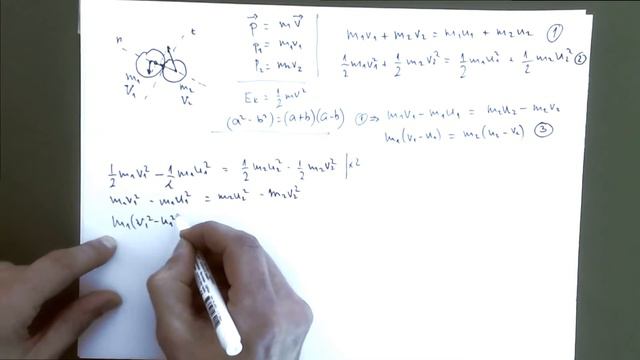 n
t
m₁
V₁
m₂
V₂
p⃗ = m₁v⃗
p₁ = m₁v₁
p₂ = m₂v₂
E_k = ½mv²
(a² - b²) = (a+b)(a-b)
m₁v₁ + m₂v₂ = m₁u₁ + m₂u₂ ①
½m₁v₁² + ½m₂v₂² = ½m₁u₁² + ½m₂u₂² ②
① ⇒ m₁v₁ - m₁u₁ = m₂u₂ - m₂v₂
m₁(v₁-u₁) = m₂(u₂-v₂) ③
½m₁v₁² - ½m₁u₁² = ½m₂u₂² - ½m₂v₂² |×2
m₁v₁² - m₁u₁² = m₂u₂² - m₂v₂²
m₁(v₁²-u₁²